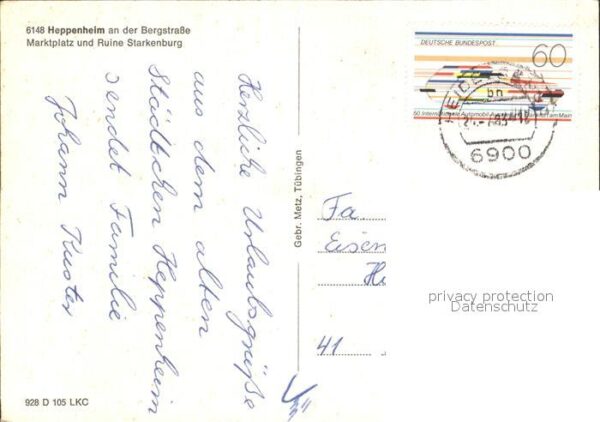 6148 Heppenheim an der Bergstraße
Marktplatz und Ruine Starkenburg
Herzliche Urlaubsgrüße
aus dem alten
Städtchen Heppenheim
sendet Familie
Johann Kuster
Gebr. Metz, Tübingen
DEUTSCHE BUNDESPOST
60
50 Internationale Automobil-Ausstellung Frankfurt am Main
HEIDELBERG
bn
6900
Fa.
Eisen
41
privacy protection
Datenschutz
928 D 105 LKC